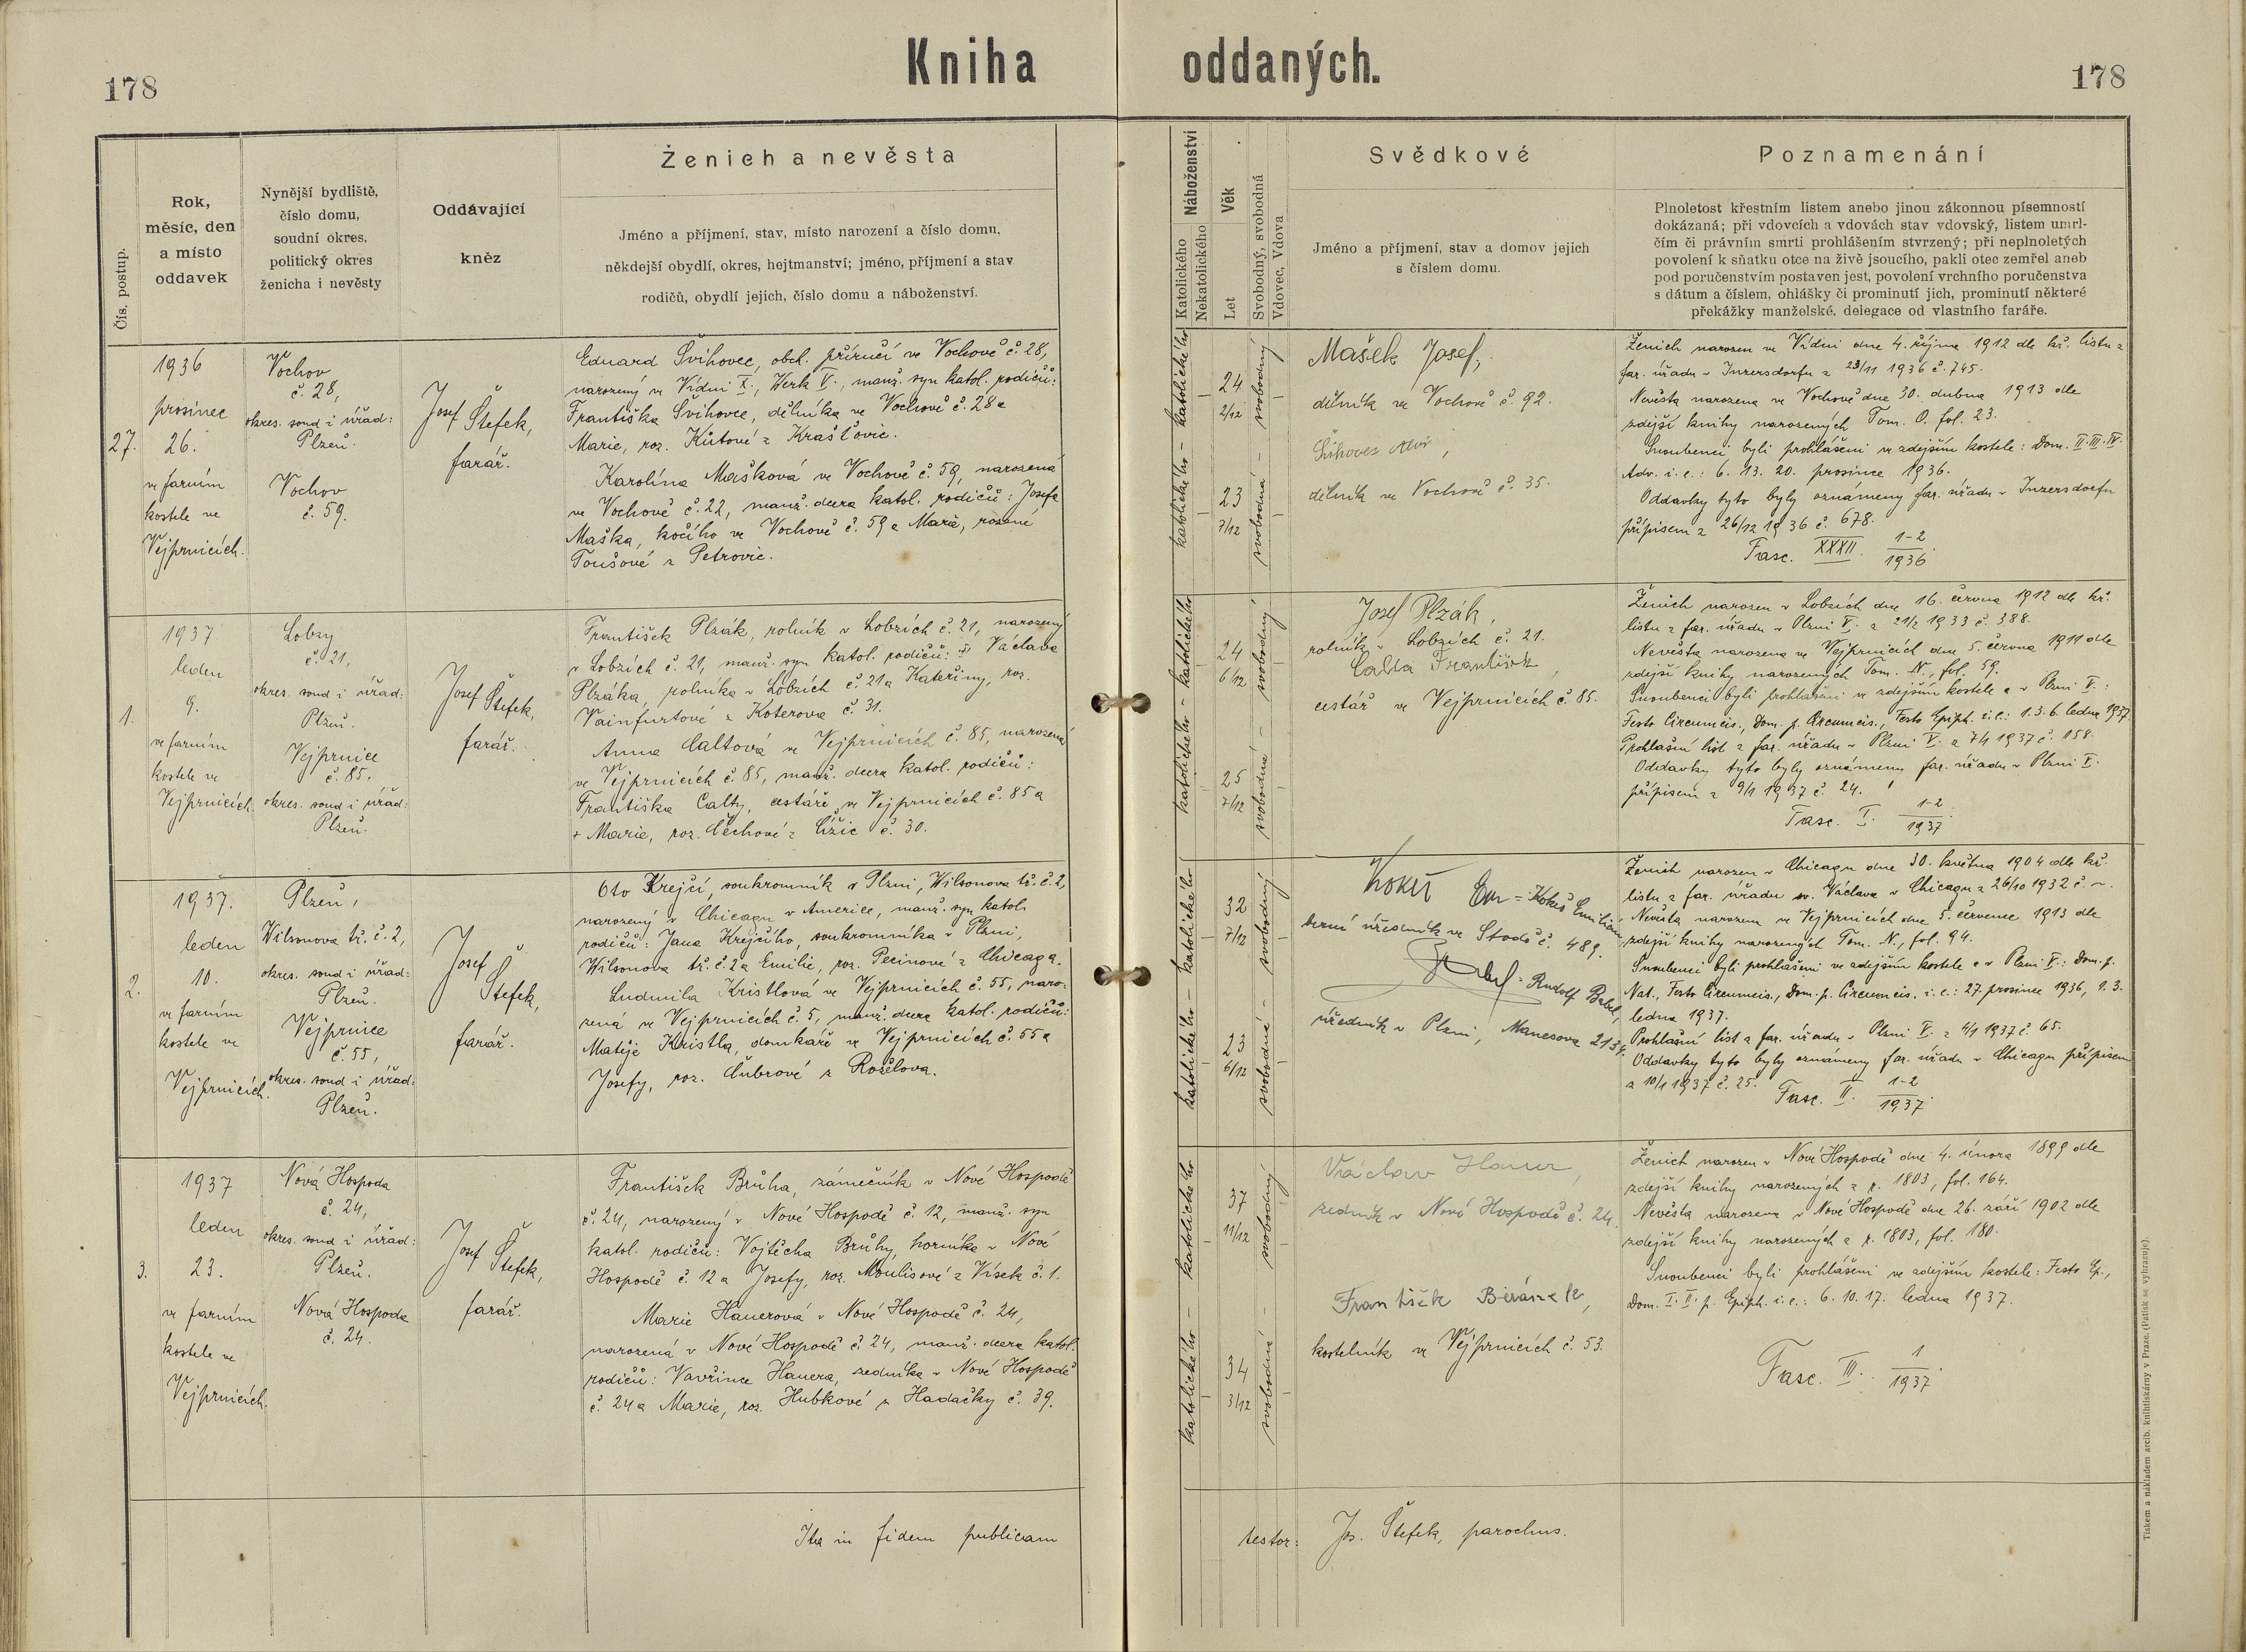 Kniha oddaných.
178
178
Čís. postup.
Rok,
měsíc, den
a místo
oddavek
Nynější bydliště,
číslo domu,
soudní okres,
politický okres
ženicha i nevěsty
Oddávající
kněz
Ženich a nevěsta
Jméno a příjmení, stav, místo narození a číslo domu,
někdejší obydlí, okres, hejtmanství; jméno, příjmení a stav
rodičů, obydlí jejich, číslo domu a náboženství.
Náboženství
Katolického
Nekatolického
Věk
Let
Svobodný, svobodná
Vdovec, Vdova
Svědkové
Jméno a příjmení, stav a domov jejich
s číslem domu.
Poznamenání
Plnoletost křestním listem anebo jinou zákonnou písemností
dokázaná; při vdovcích a vdovách stav vdovský, listem umrl-
čím či právním smrti prohlášením stvrzený; při neplnoletých
povolení k sňatku otce na živě jsoucího, pakli otec zemřel aneb
pod poručenstvím postaven jest, povolení vrchního poručenstva
s dátum a číslem, ohlášky či prominutí jich, prominutí některé
překážky manželské, delegace od vlastního faráře.
27.
1936
prosinec
26.
ve farním
kostele ve
Vejprnicích.
Vochov
č. 28,
okres. soud i úřad:
Plzeň.
Vochov
č. 59.
Josef Štefek,
farář.
Eduard Švihovec, obch. příručí ve Vochově č. 28,
narozený ve Vídni X., Werk V., manž. syn katol. rodičů:
Františka Švihovce, dělníka ve Vochově č. 28 a
Marie, roz. Kůtové z Krašťovic.
Karolína Mašková ve Vochově č. 59, narozená
ve Vochově č. 22, manž. dcera katol. rodičů: Josefa
Maška, kočího ve Vochově č. 59 a Marie, rozené
Toušové z Petrovic.
katolického - katolického
24
2/12
23
7/12
svobodná - svobodný
Mašek Josef,
dělník ve Vochově č. 92.
dělník ve Vochově č. 35.
Ženich narozen ve Vídni dne 4. října 1912 dle kř. listu z
far. úřadu v Inzersdorfu z 23/11 1936 č. 745.
Nevěsta narozena ve Vochově dne 30. dubna 1913 dle
zdejší knihy narozených Tom. O. fol. 23.
Snoubenci byli prohlášeni ve zdejším kostele: Dom. II. III. IV.
Adv. i. e.: 6. 13. 20. prosince 1936.
Oddavky tyto byly oznámeny far. úřadu v Inzersdorfu
přípisem z 26/12 1936 č. 678.
Fasc. XXXII. 1-2/1936.
1.
1937
leden
9.
ve farním
kostele ve
Vejprnicích.
Lobzy
č. 21,
okres. soud i úřad:
Plzeň.
Vejprnice
č. 85.
okres. soud i úřad:
Plzeň.
Josef Štefek,
farář.
František Plzák, rolník v Lobzích č. 21, narozený
v Lobzích č. 21, manž. syn katol. rodičů: Václava
Plzáka, rolníka v Lobzích č. 21 a Kateřiny, roz.
Vainfurtové z Koterova č. 31.
Anna Caltová ve Vejprnicích č. 85, narozená
ve Vejprnicích č. 85, manž. dcera katol. rodičů:
Františka Calty, cestáře ve Vejprnicích č. 85 a
+ Marie, roz. Čechové z Čižic č. 30.
katolického - katolického
24
6/12
25
7/12
svobodná - svobodný
Josef Plzák,
rolník v Lobzích č. 21.
Calda František,
cestář ve Vejprnicích č. 85.
Ženich narozen v Lobzích dne 16. června 1912 dle kř.
listu z far. úřadu v Plzni V. z 21/2 1933 č. 388.
Nevěsta narozena ve Vejprnicích dne 5. června 1911 dle
zdejší knihy narozených Tom. N., fol. 59.
Snoubenci byli prohlášeni ve zdejším kostele a v Plzni V.:
Festo Circumcis., Dom. p. Circumcis., Festo Epiph. i. e.: 1. 3. 6. ledna 1937.
Prohlašní list z far. úřadu v Plzni V. z 7/1 1937 č. 158.
Oddavky tyto byly oznámeny far. úřadu v Plzni V.
přípisem z 9/1 1937 č. 24.
Fasc. I. 1-2/1937.
2.
1937.
leden
10.
ve farním
kostele ve
Vejprnicích.
Plzeň,
Wilsonova tř. č. 2,
okres. soud i úřad:
Plzeň.
Vejprnice
č. 55,
okres. soud i úřad:
Plzeň.
Josef
Štefek,
farář.
Oto Krejčí, soukromník v Plzni, Wilsonova tř. č. 2,
narozený v Chicagu v Americe, manž. syn katol.
rodičů: Jana Krejčího, soukromníka v Plzni,
Wilsonova tř. č. 2 a Emilie, roz. Pecinové z Chicaga.
Ludmila Kristlová ve Vejprnicích č. 55, naro-
zená ve Vejprnicích č. 5, manž. dcera katol. rodičů:
Matěje Kristla, domkáře ve Vejprnicích č. 55 a
Josefy, roz. Čubrové z Roželova.
katolického - katolického
32
7/12
23
6/12
svobodná - svobodný
Kokeš Em = Kokeš Emilian,
berní úředník ve Stodě č. 489.
Babel = Rudolf Babel,
úředník v Plzni, Manesova 2134.
Ženich narozen v Chicagu dne 30. května 1904 dle kř.
listu z far. úřadu sv. Václava v Chicagu z 26/10 1932 č. ~.
Nevěsta narozena ve Vejprnicích dne 5. července 1913 dle
zdejší knihy narozených Tom. N., fol. 94.
Snoubenci byli prohlášeni ve zdejším kostele a v Plzni V.: Dom. p.
Nat., Festo Circumcis., Dom. p. Circumcis. i. e.: 27. prosince 1936, 1. 3.
ledna 1937.
Prohlašní list z far. úřadu v Plzni V. z 4/1 1937 č. 65.
Oddavky tyto byly oznámeny far. úřadu v Chicagu přípisem
z 10/1 1937 č. 25. Fasc. II. 1-2/1937.
3.
1937
leden
23.
ve farním
kostele ve
Vejprnicích.
Nová Hospoda
č. 24,
okres. soud i úřad:
Plzeň.
Nová Hospoda
č. 24.
Josef Štefek,
farář.
František Brůha, zámečník v Nové Hospodě
č. 24, narozený v Nové Hospodě č. 12, manž. syn
katol. rodičů: Vojtěcha Brůhy, horníka v Nové
Hospodě č. 12 a Josefy, roz. Moulisové z Vísek č. 1.
Marie Hauerová v Nové Hospodě č. 24,
narozená v Nové Hospodě č. 24, manž. dcera katol.
rodičů: Vavřince Hauera, zedníka v Nové Hospodě
č. 24 a Marie, roz. Hubkové z Hadačky č. 39.
katolického - katolického
37
11/12
34
3/12
svobodná - svobodný
Václav Hauer,
zedník v Nové Hospodě č. 24.
František Beránek,
kostelník ve Vejprnicích č. 53.
Ženich narozen v Nové Hospodě dne 4. února 1899 dle
zdejší knihy narozených z r. 1803, fol. 164.
Nevěsta narozena v Nové Hospodě dne 26. září 1902 dle
zdejší knihy narozených z r. 1803, fol. 180.
Snoubenci byli prohlášeni ve zdejším kostele: Festo Ep.,
Dom. I. II. p. Epiph. i. e.: 6. 10. 17. ledna 1937.
Fasc. III. 1/1937.
Ita in fidem publicam
testor: Jos. Štefek, parochus.
Tiskem a nákladem arcib. knihtiskárny v Praze. (Patisk se vyhrazuje).